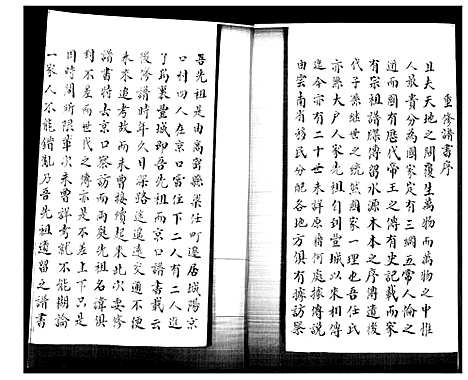 重修譜書序
且夫天地之間覆生萬物而萬物之中惟
人最貴分為國家定有三綱五常人倫之
道而國有歷代帝王之傳有史記載而家
有宗祖譜牒傳留水源木本之序傳遺後
代子孫繼世之統然國家一理也吾任氏
亦屬大戶人家先祖引到萱城以來相傳
迄今亦有二十世未詳原籍何處據傳說
由雲南省移民分配各地方俱有據訪察
吾先祖是由萬甯縣柒任町遷居城陽京
口村四人在京口富住下二人有二人進
了萬萱城即吾先祖而京口譜書載云
後修譜時年久日深路途遙遠交通不便
未來追考故而未曾接續起來此次要修
譜書特去京口西大庭先祖名諱俱
對不差而世代之傳亦是不差上下只是
因時間所限草次未曾詳考就不能糊論
一家人不能錯亂乃吾先祖遺留之譜書